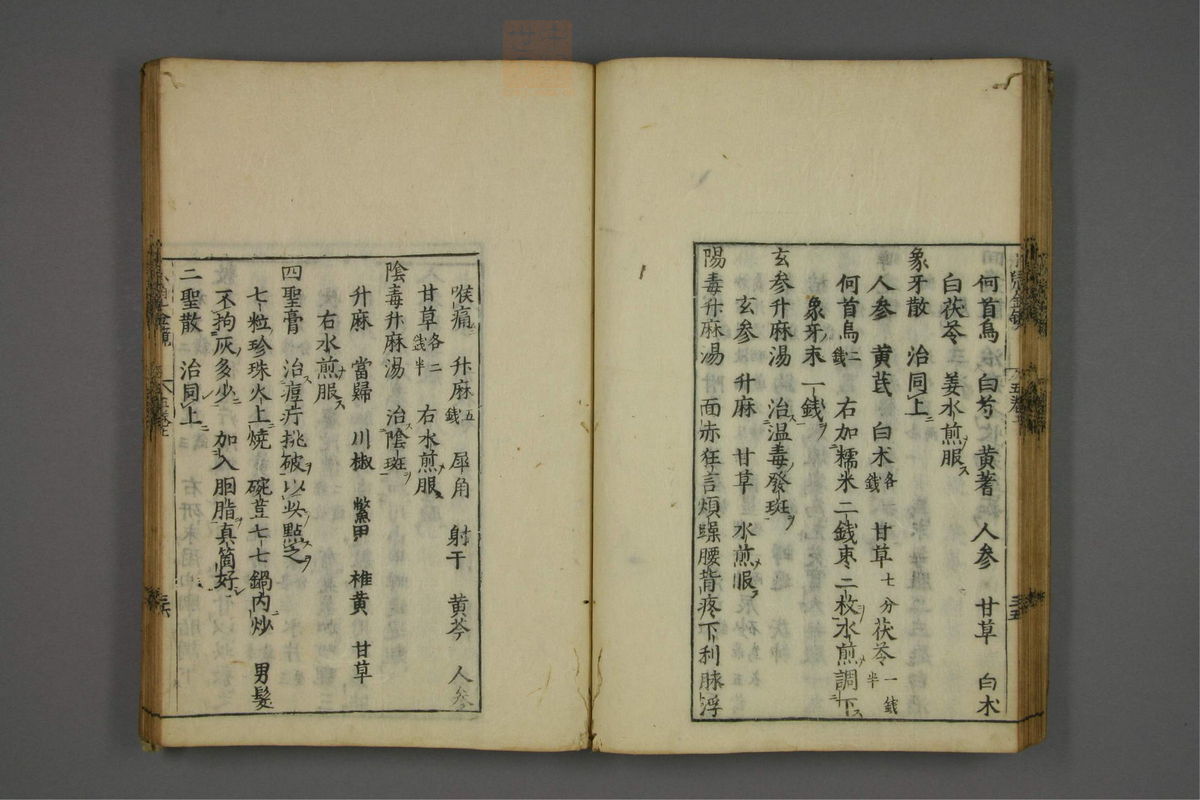 何首烏 白芍 黄著 人参 甘草 白朮
白茯苓 姜水煎服ス
象牙散 治同上ニ
人参 黄芪 白朮各銭 甘草七分 茯苓一銭半
何首烏二銭 右加糯米二銭枣二枚水煎調下ス
象牙末一銭ヲ
玄参升麻湯 治温毒發斑ヲ
玄参 升麻 甘草 水煎服ス
陽毒升麻湯 面赤狂言煩躁腰背疼下利脉浮
喉痛 升麻五銭 犀角 射干 黄芩 人参
甘草各二銭半 右水煎服ス
陰毒升麻湯 治陰斑ヲ
升麻 當歸 川椒 鱉甲 椎黄 甘草
右水煎服ス
四聖膏 治痘疔挑破以此點之
七粒珍珠火上焼 碗荳七七鍋内炒 男髮
不拘灰多少 加入胭脂真箇好
二聖散 治同上ニ